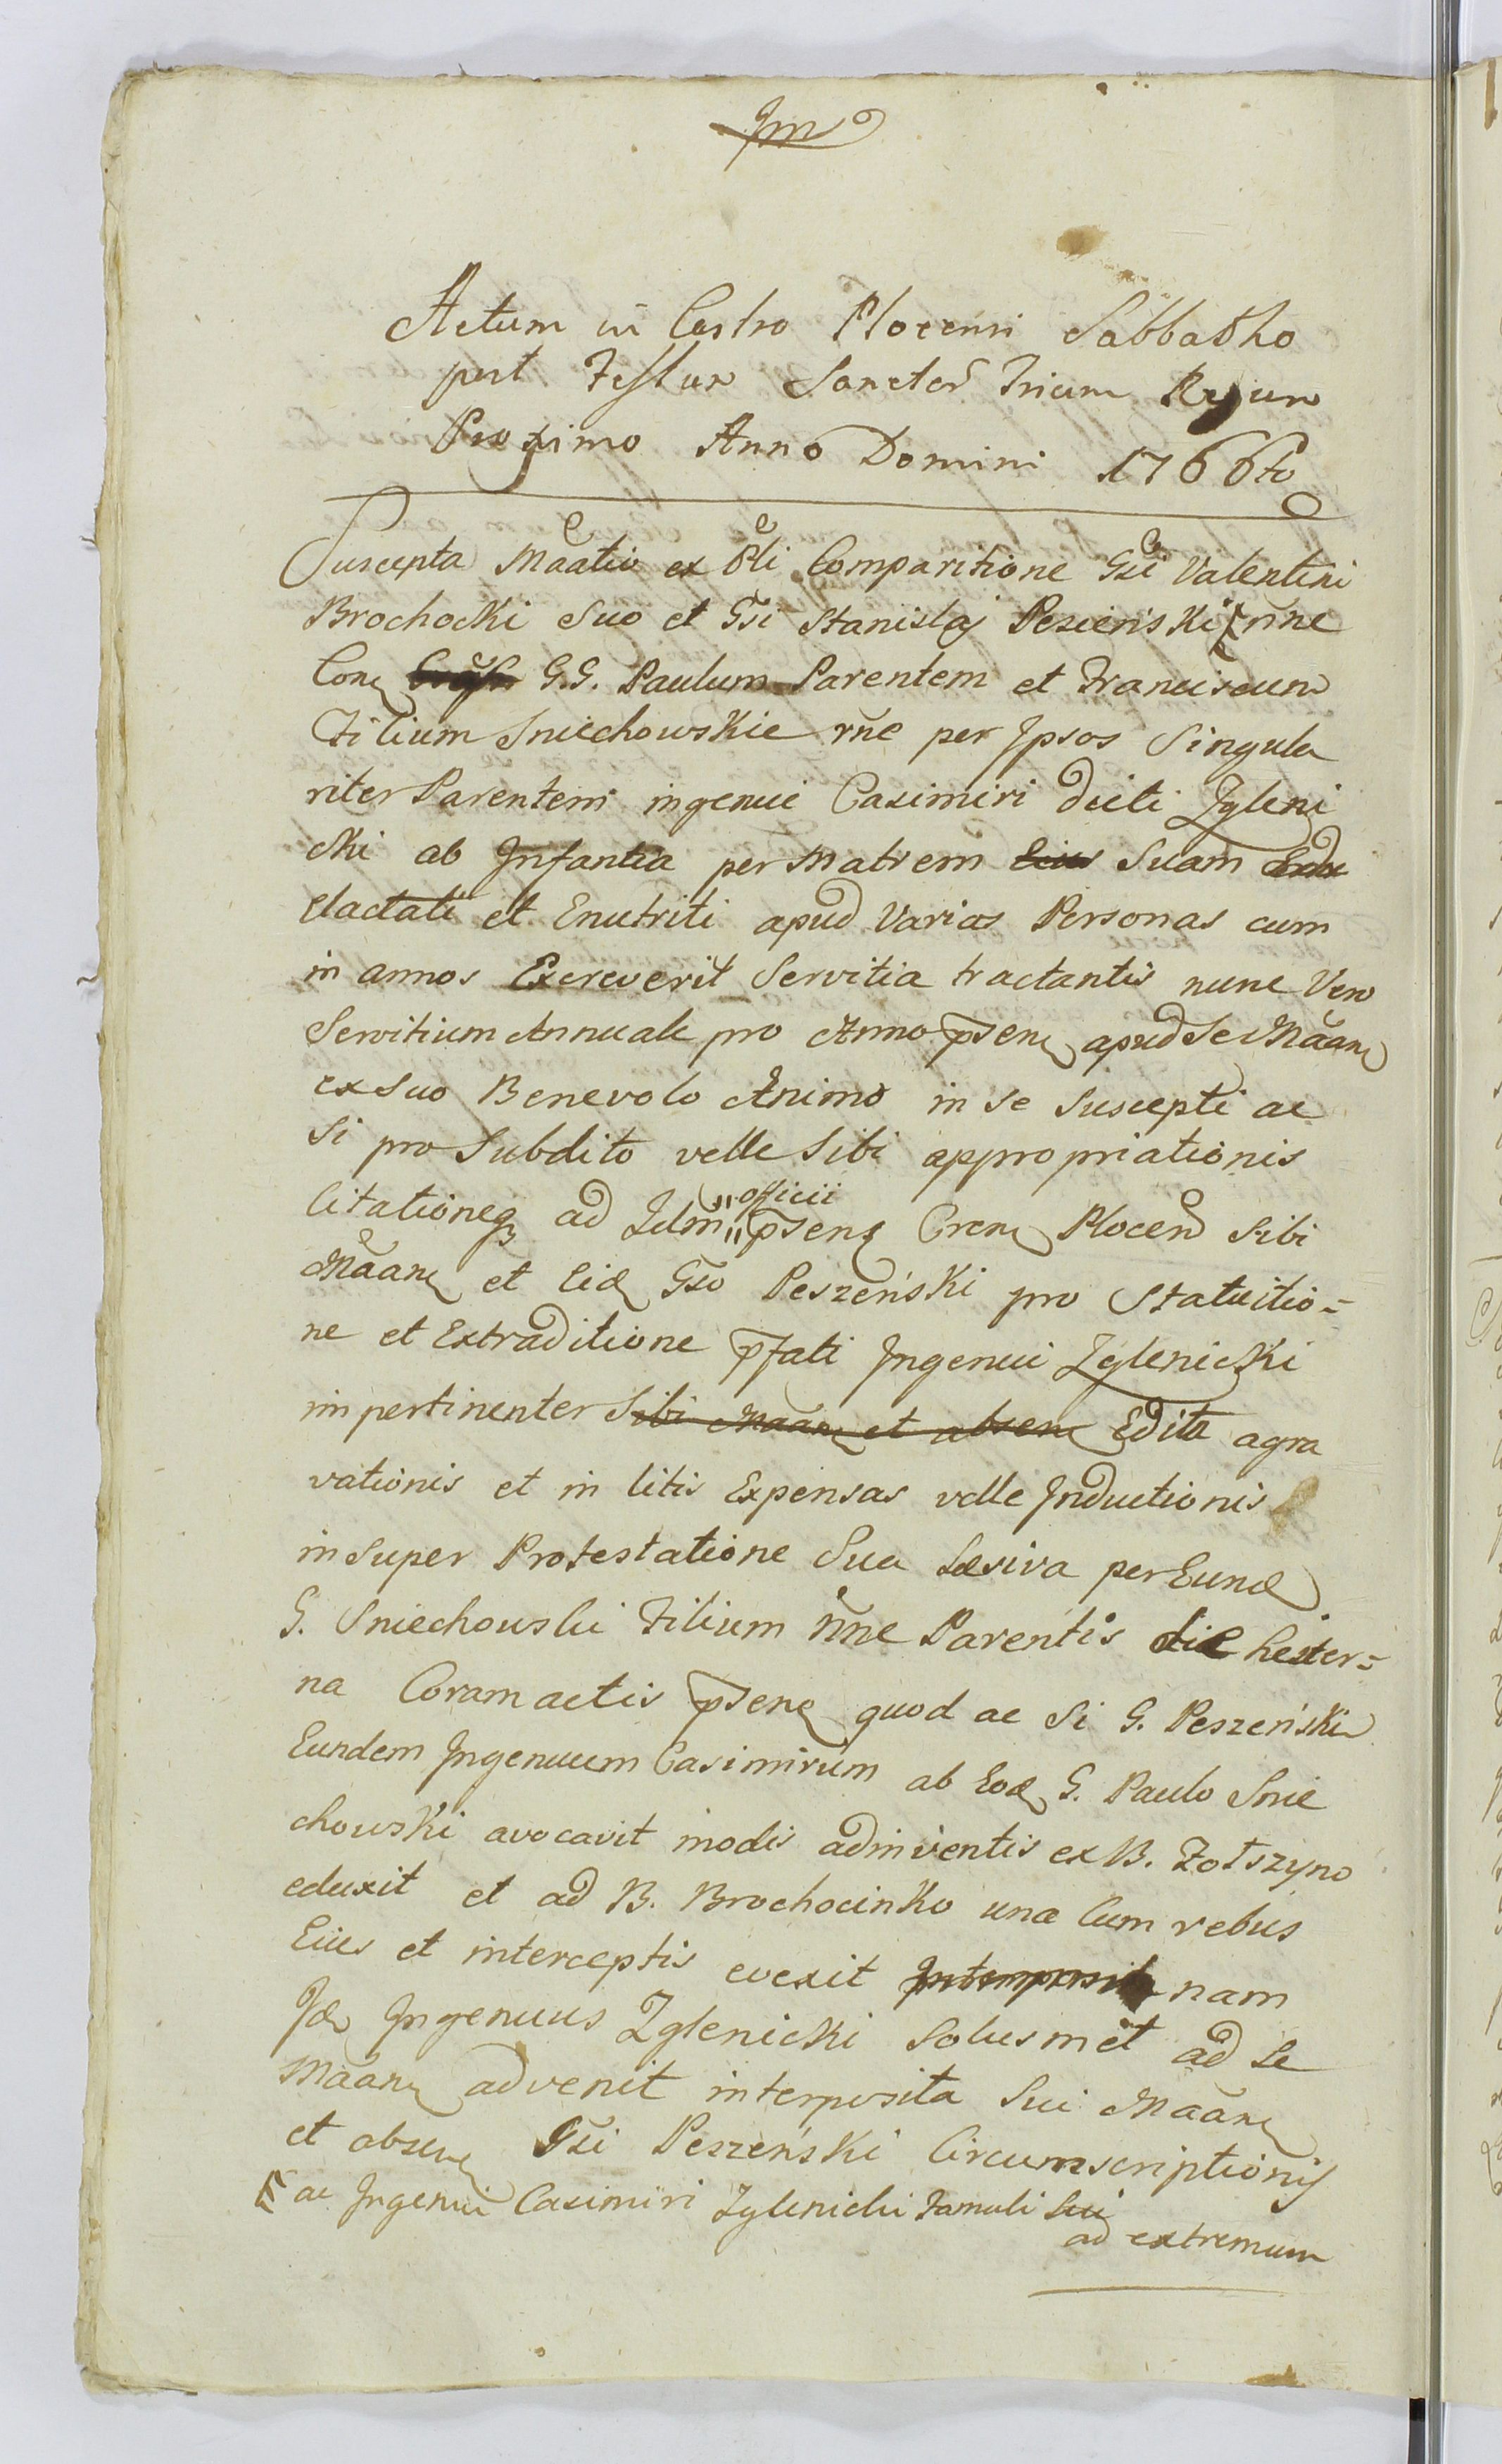 Jm
Actum in Castro Plocensi Sabbatho
post Festum Sanctor Trium Regum
Proximo Anno Domini 1766to
Suscepta Maatio ex Pli Comparitione Gsi Valentini
Brochocki Suo et Gsi Stanislaj Peszeński nne
Con G.G. Paulum Parentem et Franciscum
Filium Sniechowskie rne per Ipsos Singula
riter Parentem ingenui Casimiri dicti Zgleni
cki ab Infantia per Matrem Eius Suam
elactati et Enutriti apud Varias Personas cum
in annos Excreverit Servitia tractantis nunc Vero
Servitium Annuale pro Anno psen apud Se Maan
ex Suo Benevolo Animo in se Suscepti ac
Si pro Subdito velle Sibi appropriationis
Citationeq ad Idm officii psens Cren Plocen Sibi
Maan et Eid Gso Peszeński pro Statuitio=
ne et Extraditione pfati Ingenui Zglenicki
impertinenter Sibi Maan et absen Edita agra
vationis et in litis Expensas velle Inductionis
insuper Protestatione Sua Læsiva per Eund
G. Sniechowski Filium nne Parentis die hester=
na Coram actis psen quod ac Si G. Peszeński
Eundem Ingenuum Casimirum ab Eod G. Paulo Snie
chowski avocavit modis adinventis ex B. Zołszyno
eduxit et ad B. Brochocinko una Cum rebus
Eius et interceptis evexit nam
Id Ingenuus Zglenicki Solusmet ad Se
Maan advenit interposita Sui Maan
et absen Gsi Peszeński Circumscriptionis
ac Ingenui Casimiri Zglenicki Famuli Sui
ad extremum